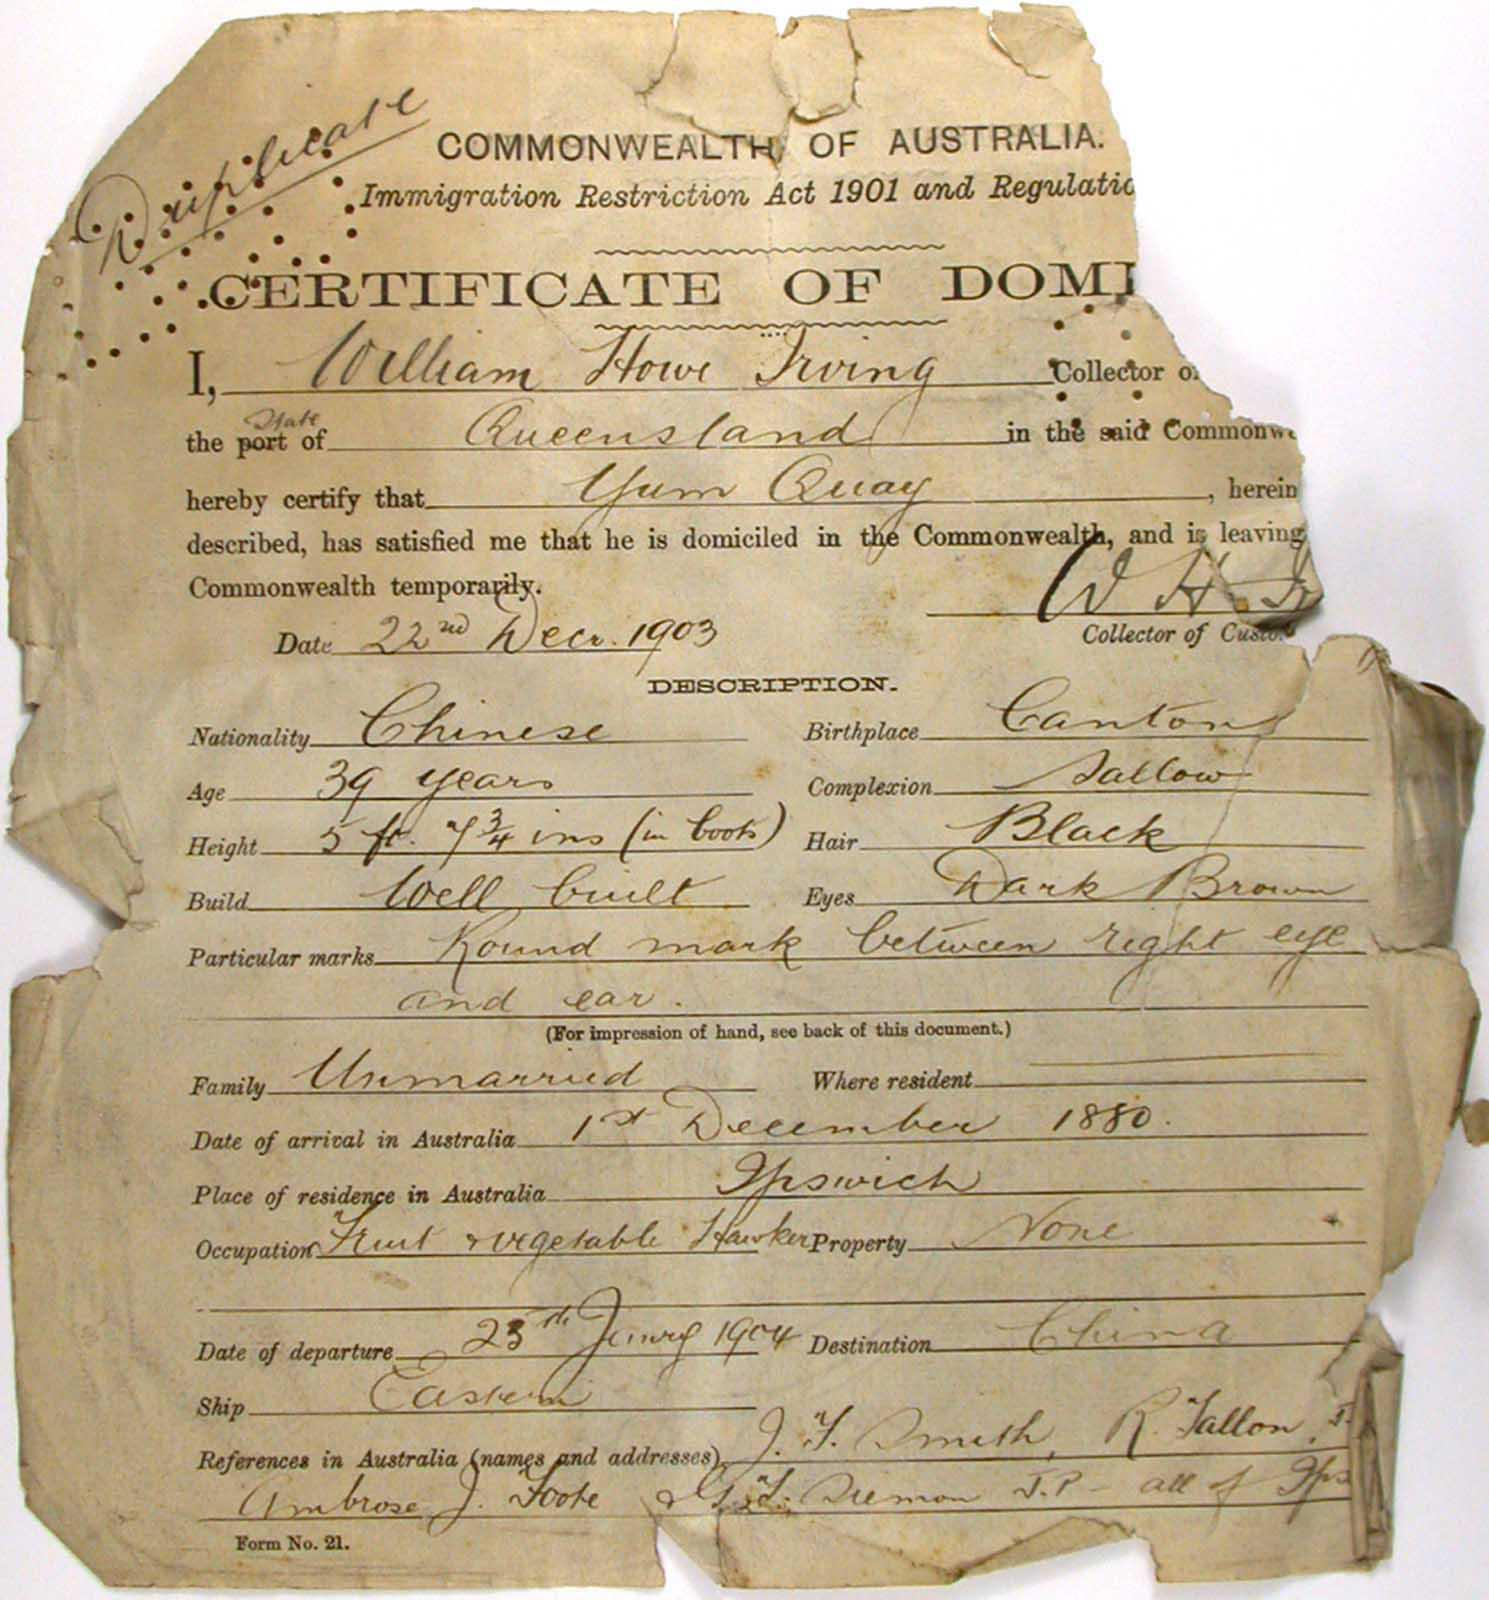 Duplicate
COMMONWEALTH OF AUSTRALIA.
Immigration Restriction Act 1901 and Regulatio
CERTIFICATE OF DOMI
I, William Howe Irving Collector o
State
the port of Queensland in the said Commonwe
hereby certify that Yum Quay, herein
described, has satisfied me that he is domiciled in the Commonwealth, and is leaving
Commonwealth temporarily.
W H Ir
Date 22nd Decr. 1903 Collector of Custo
DESCRIPTION.
Nationality Chinese Birthplace Canton
Age 39 years Complexion Sallow
Height 5 ft. 7 3/4 ins (in boots) Hair Black
Build Well built Eyes Dark Brown
Particular marks Round mark between right eye
and ear.
(For impression of hand, see back of this document.)
Family Unmarried Where resident
Date of arrival in Australia 1st December 1880.
Place of residence in Australia Ipswich
Occupation Fruit & vegetable Hawker Property None
Date of departure 25th Janry 1904 Destination China
Ship Eastern
References in Australia (names and addresses) J. F. Smith, R. Tallon, J.
Ambrose J. Foote & J.P - all of Ips
Form No. 21.